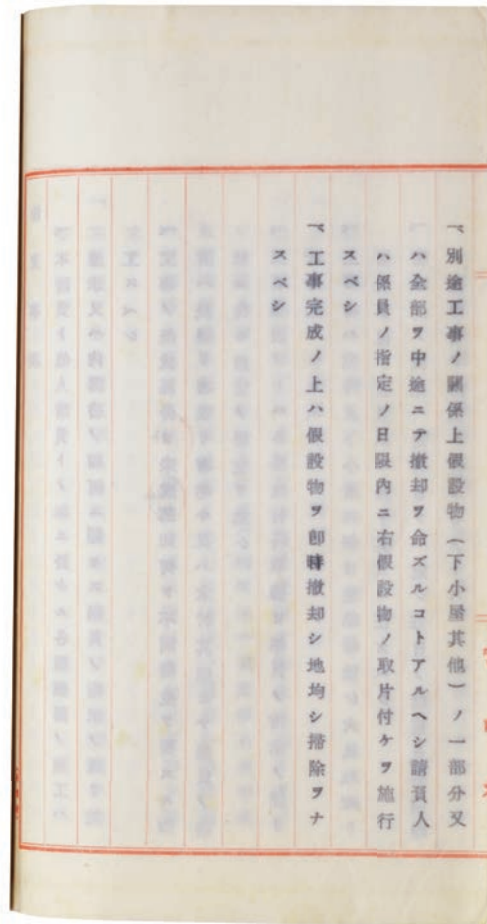 一、別途工事ノ關係上假設物（下小屋其他）ノ一部分又
ハ全部ヲ中途ニテ撤却ヲ命ズルコトアルヘシ請負人
ハ係員ノ指定ノ日限内ニ右假設物ノ取片付ケヲ施行
スベシ
一、工事完成ノ上ハ假設物ヲ卽時撤却シ地均シ掃除ヲナ
スベシ